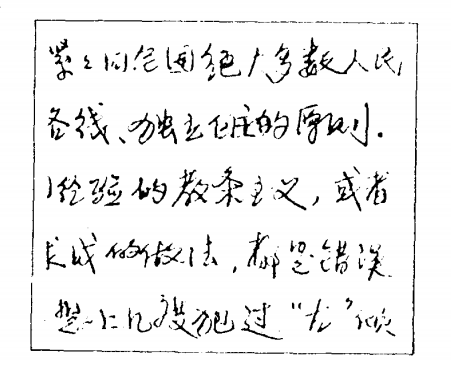 紧紧同全国绝大多数人民
各线、独立自主的原则.
经验的教条主义，或者
的做法，都是错误
上几度犯过“左”倾